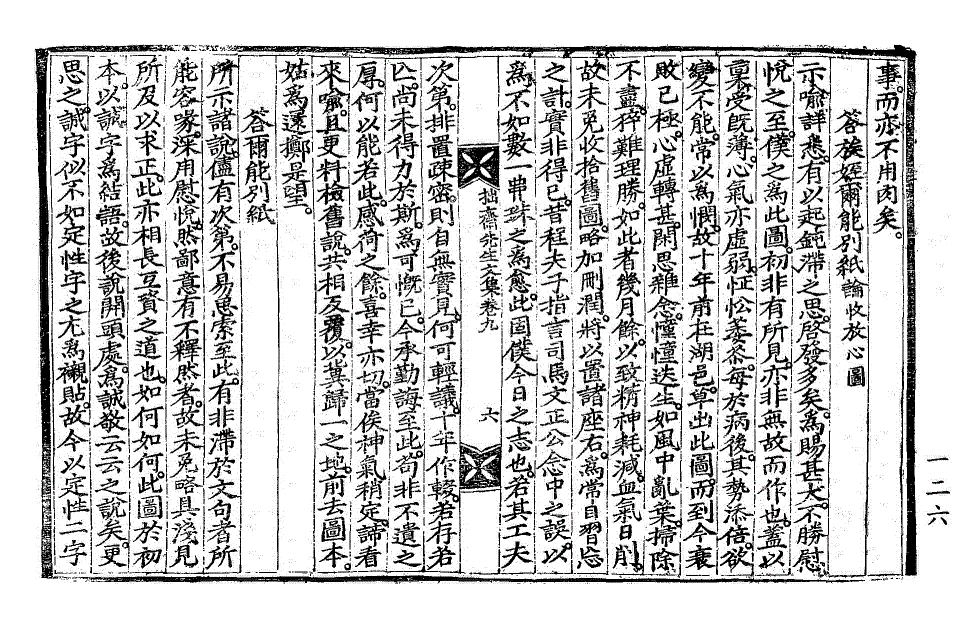 事而亦不用肉矣
答族姪爾能別紙論收放心圖
示喩詳悉有以起鈍滯之思啓發多矣爲賜甚大不勝慰
悅之至僕之爲此圖初非有所見亦非無故而作也蓋以
稟受旣薄心氣亦虛弱怔忪萎苶每於病後其勢添倍欲
變不能常以爲憫故十年前在湖邑草出此圖而到今衰
敗已極心虛轉甚閑思雜念憧憧迭生如風中亂葉掃除
不盡猝難理勝如此者幾月餘以致精神耗減血氣日削
故未免收拾舊圖略加刪潤將以置諸座右爲常目習忘
之計實非得已昔程夫子指言司馬文正公念中之誤以
爲不如數一串珠之爲愈此固僕今日之志也若其工夫
拙齋先生文集卷九
六
次第排置疎密則自無實見何可輕議十年作輟若存若
匹尙未得力於斯爲可慨已今承勤誨至此苟非不遺之
厚何以能若此感荷之餘喜幸亦切當俟神氣稍定諦看
來喩且更料檢舊說共相反覆以冀歸一之地前去圖本
姑爲還擲是望
答爾能別紙
所示諸說儘有次第不易思索至此有非滯於文句者所
能容喙深用慰悅然鄙意有不釋然者故未免略具淺見
所及以求正此亦相長互資之道也如何如何此圖於初
本以誠字爲結語故後說開頭處爲誠敬云云之說矣更
思之誠字似不如定性字之尤爲襯貼故今以定性二字
一二六